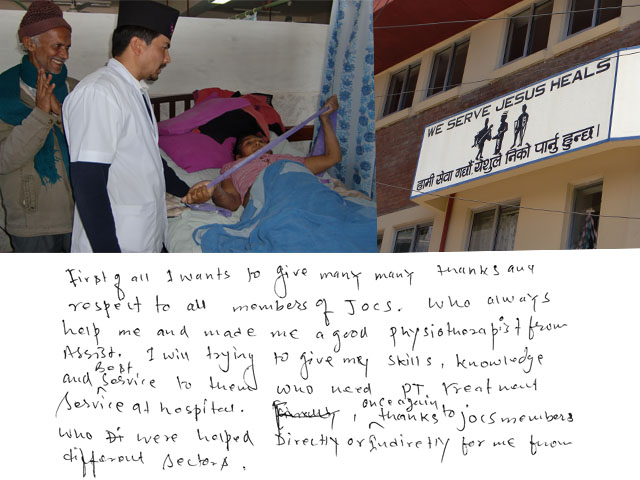 WE SERVE JESUS HEALS
हामी सेवा गर्छौं येशूले निको पार्नु हुन्छ।
First of all I wants to give many many thanks and
respect to all members of JOCS. Who always
help me and made me a good physiotherapist from
Assist. I will trying to give my skills, knowledge
and Best Service to them who need PT Treatment
Service at hospital. Finally, once again thanks to jocs members
who Di were helped Directly or Indiretly for me from
different sectors.